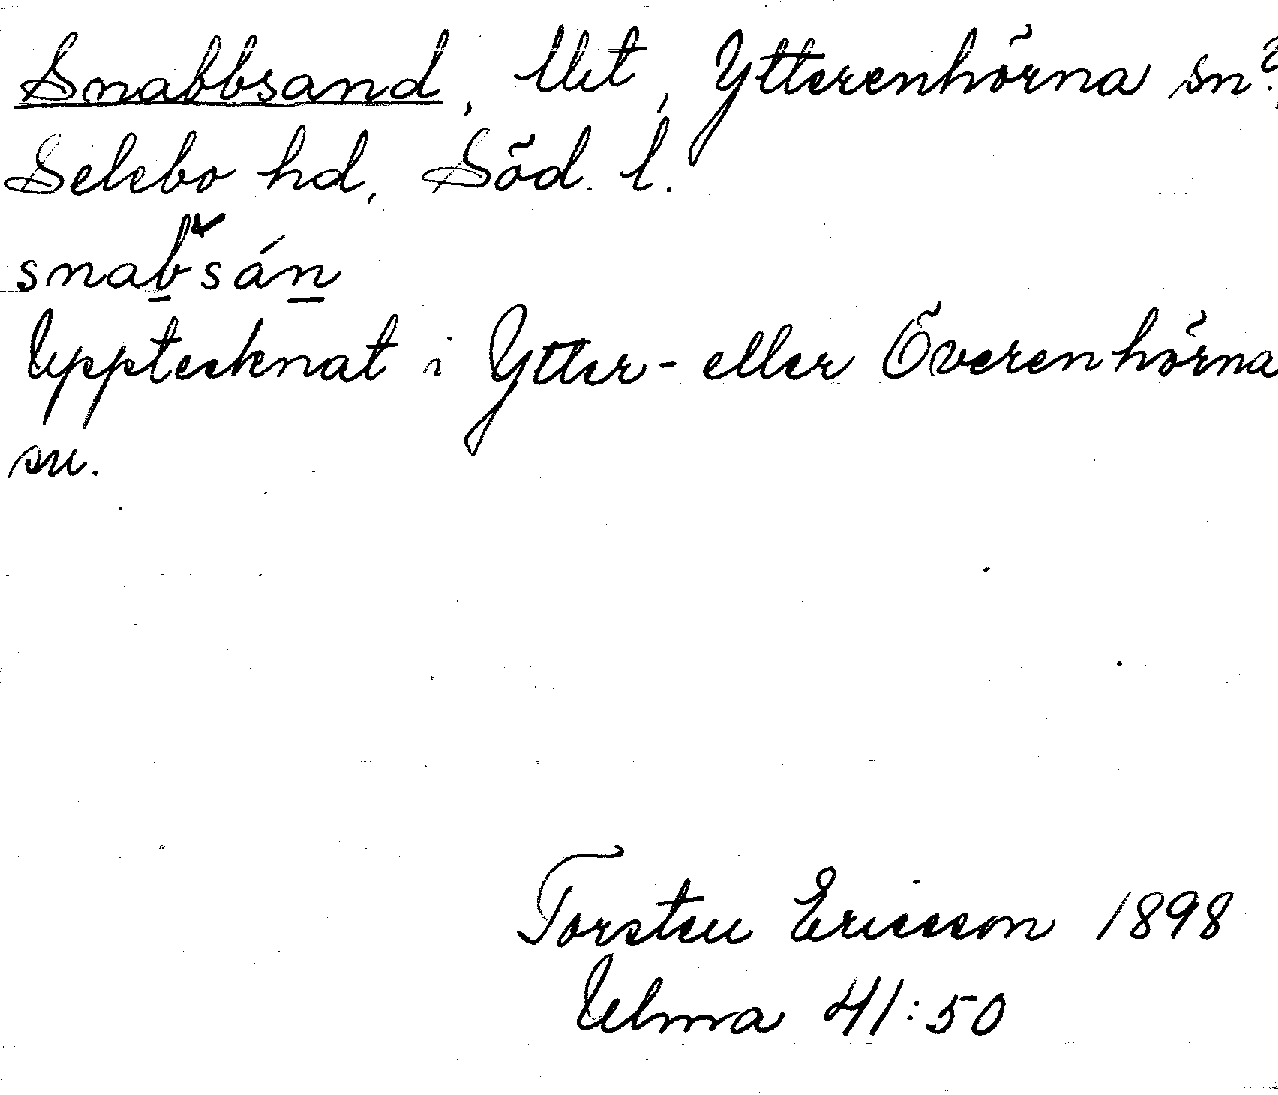 Snabbsand, Utt, Ytterenhörna sn?,
Selebo hd, Söd. l.
snab̌sán
Upptecknat i Ytter- eller Överenhörna
sn.
Torsten Ericsson 1898
Ulma 41:50